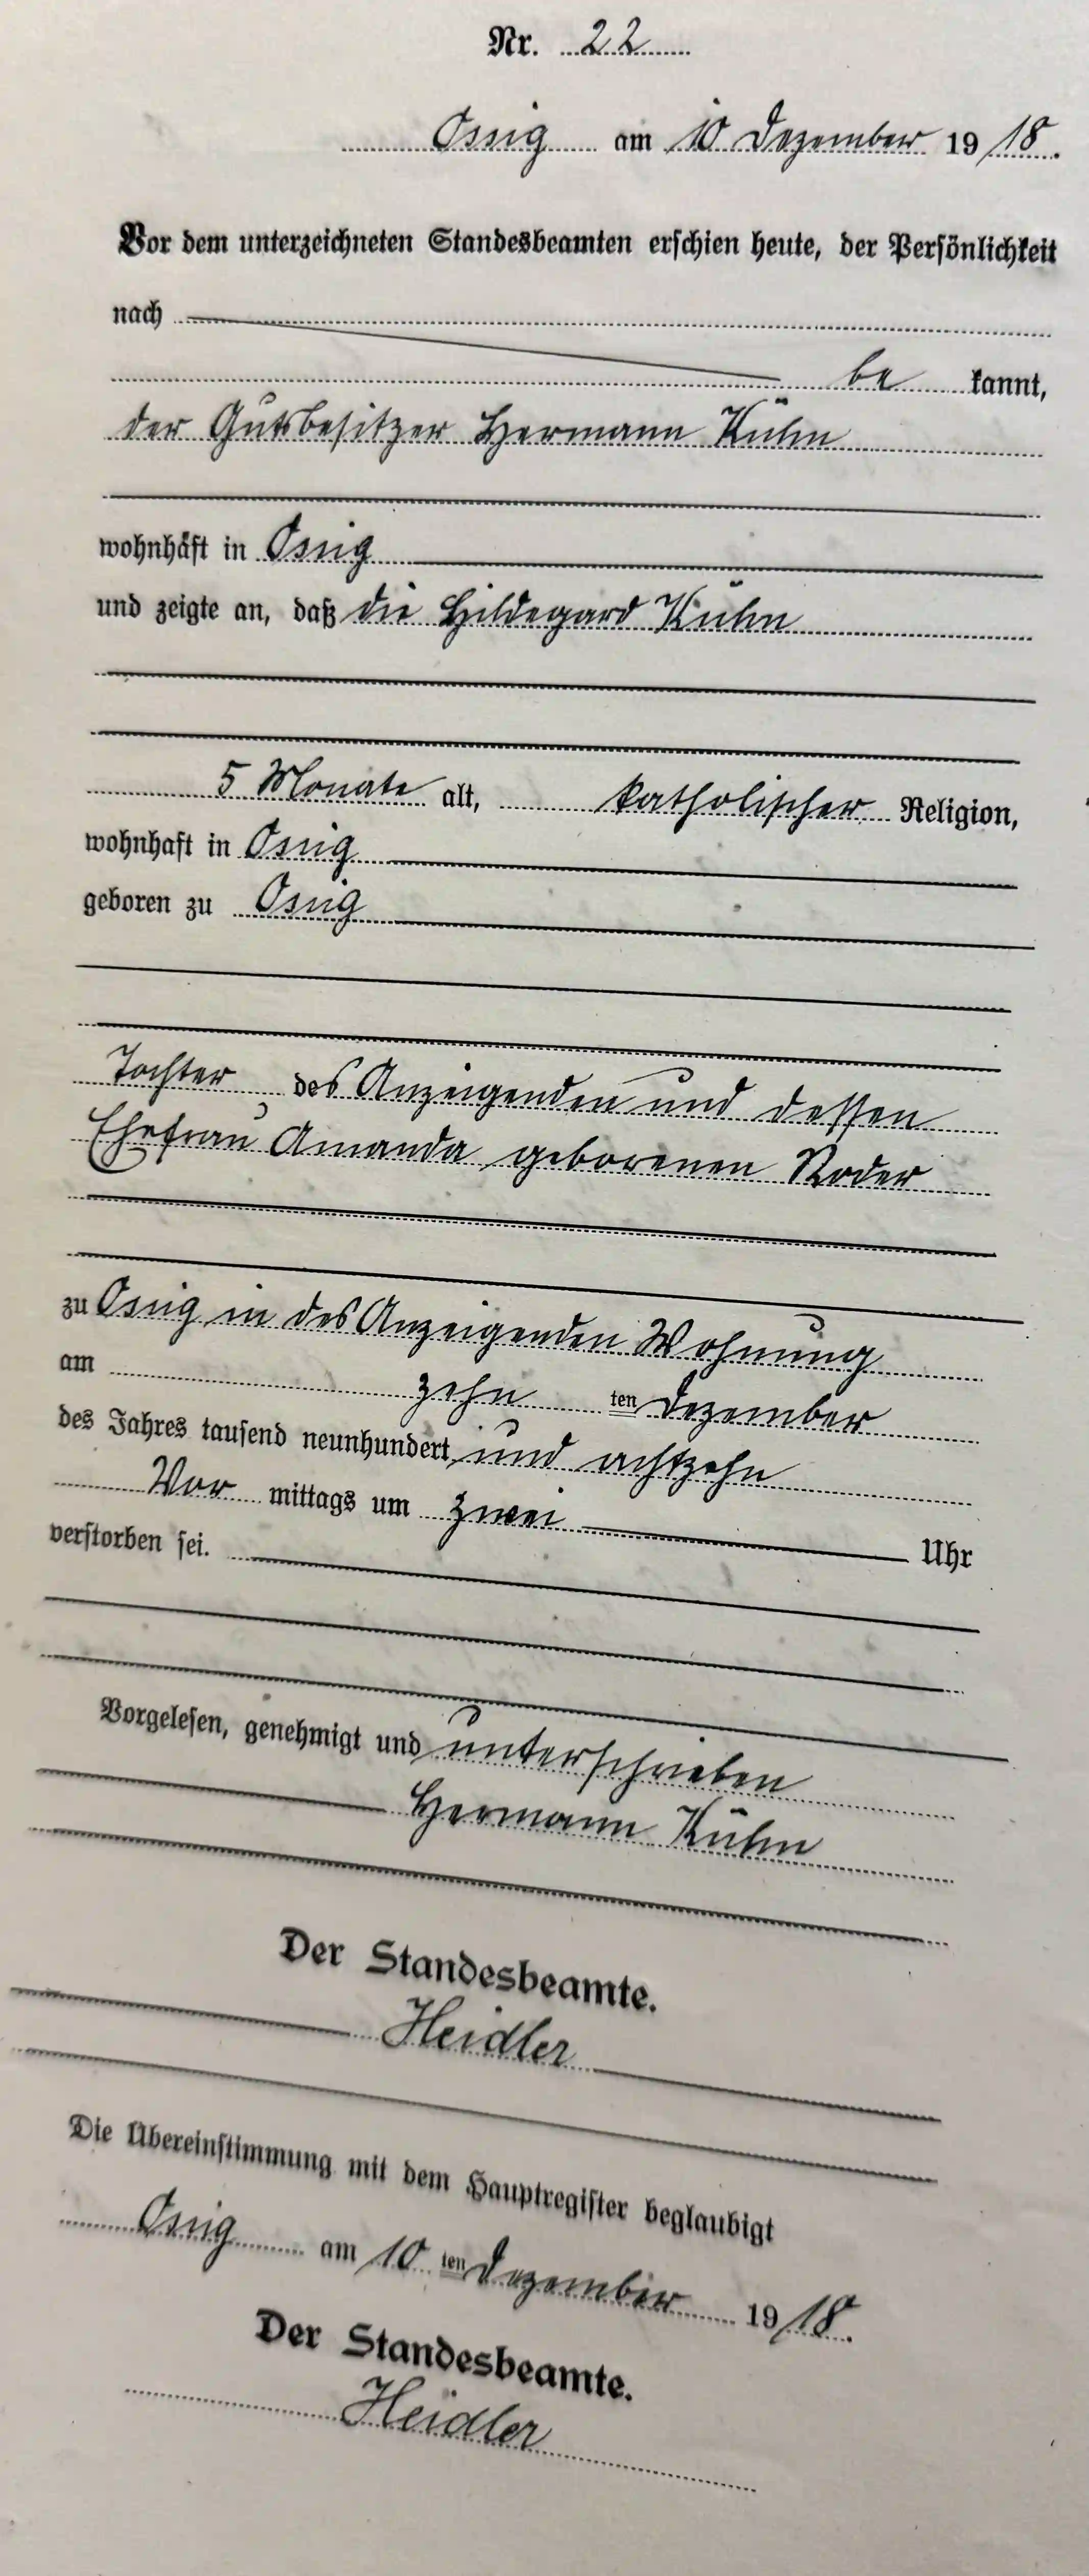 Nr. 22
Ossig am 10 Dezember 1918.
Vor dem unterzeichneten Standesbeamten erschien heute, der Persönlichkeit
nach
be kannt,
der Gutsbesitzer Hermann Kühn
wohnhaft in Ossig
und zeigte an, daß die Hildegard Kühn
5 Monate alt, katholischer Religion,
wohnhaft in Ossig
geboren zu Ossig
Tochter des Anzeigenden und dessen
Ehefrau Amanda geborenen Roder
zu Ossig in des Anzeigenden Wohnung
am zehn ten Dezember
des Jahres tausend neunhundert und achtzehn
Vor mittags um zwei Uhr
verstorben sei.
Vorgelesen, genehmigt und unterschrieben
Hermann Kühn
Der Standesbeamte.
Heidler
Die Übereinstimmung mit dem Hauptregister beglaubigt
Ossig am 10 ten Dezember 1918.
Der Standesbeamte.
Heidler